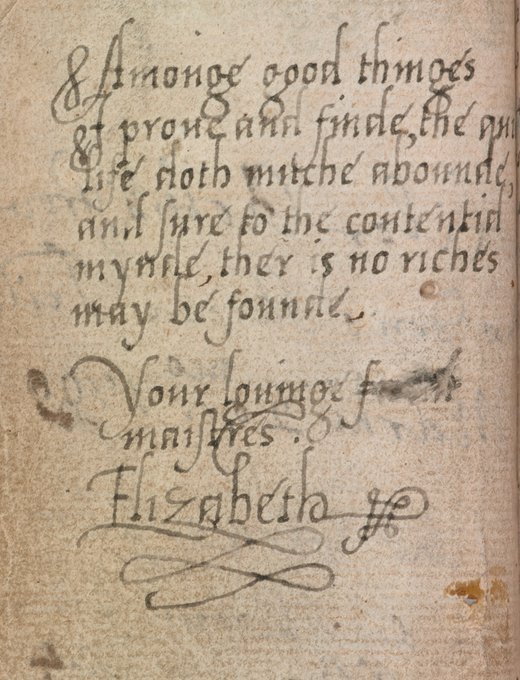 Amonge good thinges
I prove and finde, the qui
life doth mutche abounde,
and sure to the contentid
mynde, ther is no riches
may be founde.
Your lovinge
maistres.
Elizabeth